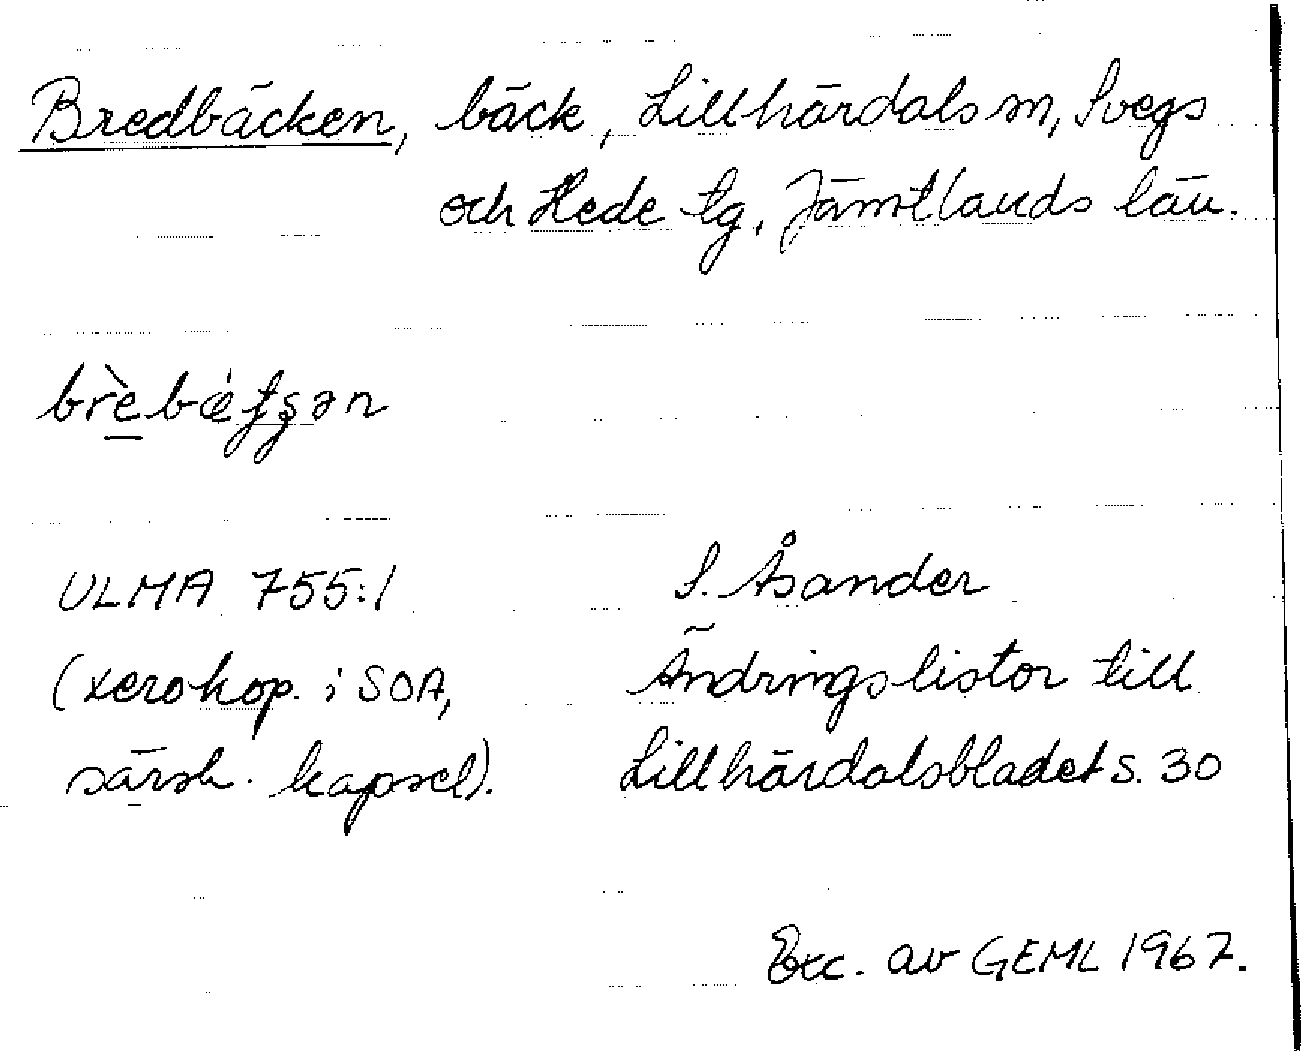 Bredbäcken, bäck, Lillhärdals sn, Svegs
och Hede tg, Jämtlands län.
ULMA 755:1
(xerokop. i SOA,
särsk. kapsel).
S. Åsander
Ändringslistor till
Lillhärdalsbladet s. 30
Exc. av GEML 1967.